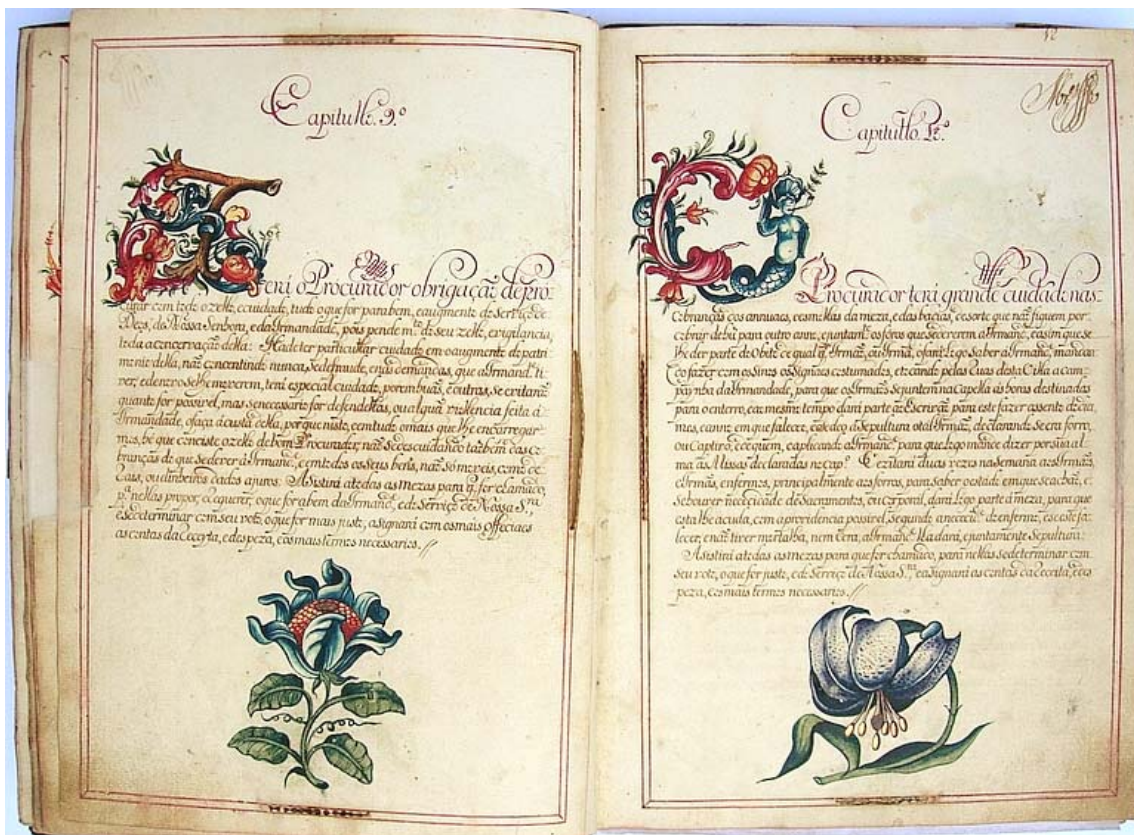 Capitullo. 9.º
Terá o Procurador obrigaçaõ de pro:
curar com todo o zello, ecuidado, tudo o que for para bem, eaugmento do Serviço de
Deos, de Nossa Senhora, eda Irmandade, pois pende m.to do seu zello, evigilancia,
toda a concervação della: Hade ter particullar cuidado em o augmento do patri
monio della, naõ concentindo nunca, sedefraude, enas demandas, que a Irmand.e ti
ver, edenovo selhe moverem, terá especial cuidado, porem huãs, e outras, se evitaraõ
quanto for possivel, mas senecessario for defendellas, ou alguã viollencia feita á
Irmandade, ofaça á custa della, porque nisto, eem tudo omais que lhe encarregar
mos, hé que conciste ozello de bom Procurador, naõ sedescuidando taõbem das co
branças do que sedever á Irmand.e, ecmto dos os seus bens, naõ só moveis, como de
Cazas, ou dinheiros dados ajuros: Asistirá atodas as mezas para q. for chamado,
p.a nellas propor, erequerer, oque for abem da Irmand.e, edo Serviço de Nossa S.ra,
esedeterminar com seu voto, oque for mais justo, asignará com osmais officiaes
as contas da receita, edespeza, eos mais termos necessarios.
12
Capitullo. 10.º
O Procurador terá grande cuidado nas:
cobranças dos annuaes, eesmollas da meza, edas bacias, desorte que naõ fiquem por
cobrar de hũ para outro anno, ejuntam.te os foros que sedeverem á Irmand.e, easim que se
lhe der parte do obito de qual q.r Irmaõ, ou Irmã, ofará logo saber á Irmand.e, mandan
do fazer com os sinos os signaes costumados, etocando pelas Ruas desta Villa a cam
paynha da Irmandade, para que os Irmaõs sejuntem na Capella ás horas destinadas
para o enterro, eao mesmo tempo dará parte ao Escrivaõ para este fazer assento dodia,
mes, eanno em que faleceo, eaonde
 foi á Sepultura o tal Irmaõ, declarando se era forro,
ou Captivo, e de quem, eaplicando a Irmand.e para que logo mande dizer por sua al
ma as Missas declaradas no cap.º Vezitará duas vezes na Semana aos Irmaõs,
e Irmãs, enfermos, principalmente aos forros, para saber o estado em que se achaõ, e
se houver necessidade de Sacramentos, ou corporal, dará logo parte á meza, para que
esta lhe acuda, com a providencia possivel, segundo a necessid.e do enfermo, e se este fa
lecer, e naõ tiver mortalha, nem Cera, a Irmand.e lla dará, ejuntamente Sepultura:
Asistirá atodas as mezas para que for chamado, para nellas sedeterminar com
seu voto, o que for justo, e do Serviço de Nossa S.ra, easignará as contas da receita, edes
peza, eos mais termos necessarios.